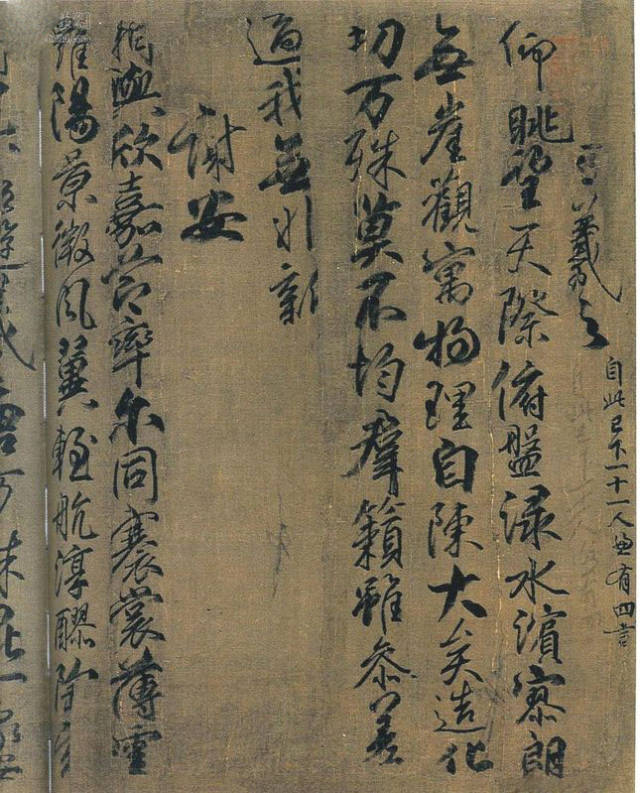 王羲之
自此已下一十一人兼有四言
仰眺望天際俯盤淥水濱寥朗
無崖觀寓物理自陳大矣造化
功万殊莫不均羣籟雖叅差
適我無非新
謝安
相與欣嘉節率尔同褰裳薄雲
羅陽景微風翼輕航淳醪陶